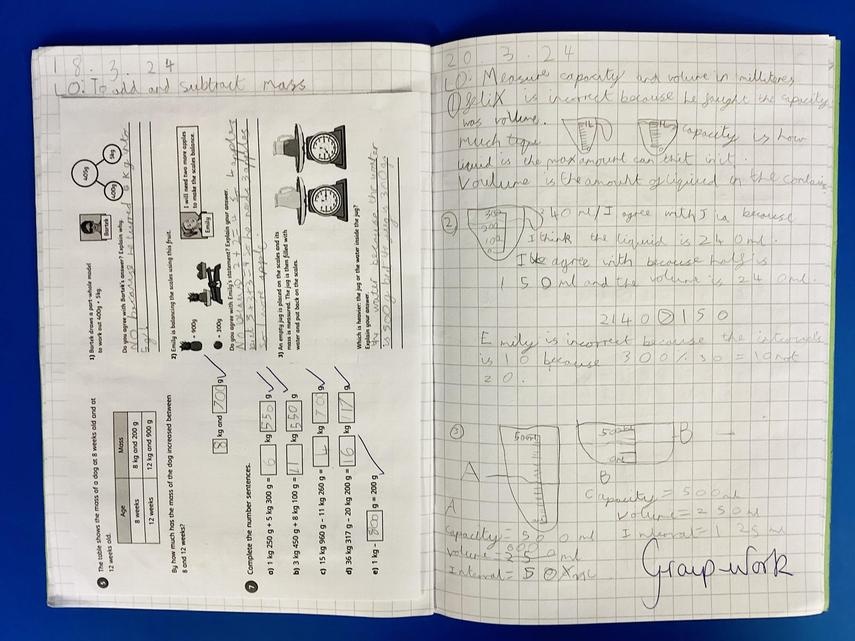 18.3.24
LO: To add and subtract mass
5 The table shows the mass of a dog at 8 weeks old and at
12 weeks old.
Age Mass
8 weeks 8 kg and 200 g
12 weeks 12 kg and 900 g
By how much has the mass of the dog increased between
8 and 12 weeks?
8 kg and 700 g
7 Complete the number sentences.
a) 1 kg 250 g + 5 kg 300 g = 6 kg 550 g
b) 3 kg 450 g + 8 kg 100 g = 11 kg 550 g
c) 15 kg 960 g – 11 kg 260 g = 4 kg 70 g
d) 36 kg 317 g – 20 kg 200 g = 16 kg 117 g
e) 1 kg – 800 g = 200 g
1) Bartek draws a part-whole model
to work out 400g + 5kg.
400g
5kg
400g
Bartek
Do you agree with Bartek's answer? Explain why.
No because he
5g!
2) Emily is balancing the scales using this fruit.
= 900g
= 300g
I will need two more apples
to make the scales balance.
Emily
Do you agree with Emily's statement? Explain your answer.
No because 2+2=4 4 apples
but she needs apples
3) An empty jug is placed on the scales and its
mass is measured. The jug is then filled with
water and put back on the scales.
Which is heavier: the jug or the water inside the jug?
Explain your answer.
the water because the water
is 500g but the jug 300g
20 3.24
LO: Measure capacity and volume in millitres
1 felix is incorrect because he faught the capacity
was volume.
1L 1L capacity is how
much
liquid is the max amount can that in it.
Voulume is the amount of liquid in the contain
2 300 240 ml / I agree with because
200
100 I think the liquid is 240ml.
I agree with because half is
150ml and the volume is 240ml
2140 > 150
Emily is incorrect because the intervals
is 10 because 300 % 30 = 10 not
20.
3 500ml 500ml B
A 0ml
B
A Capacity = 500ml
Volume = 250ml
Capacity = 500ml Interval = 125ml
Volume = 250ml
Interval = 50
Group-work